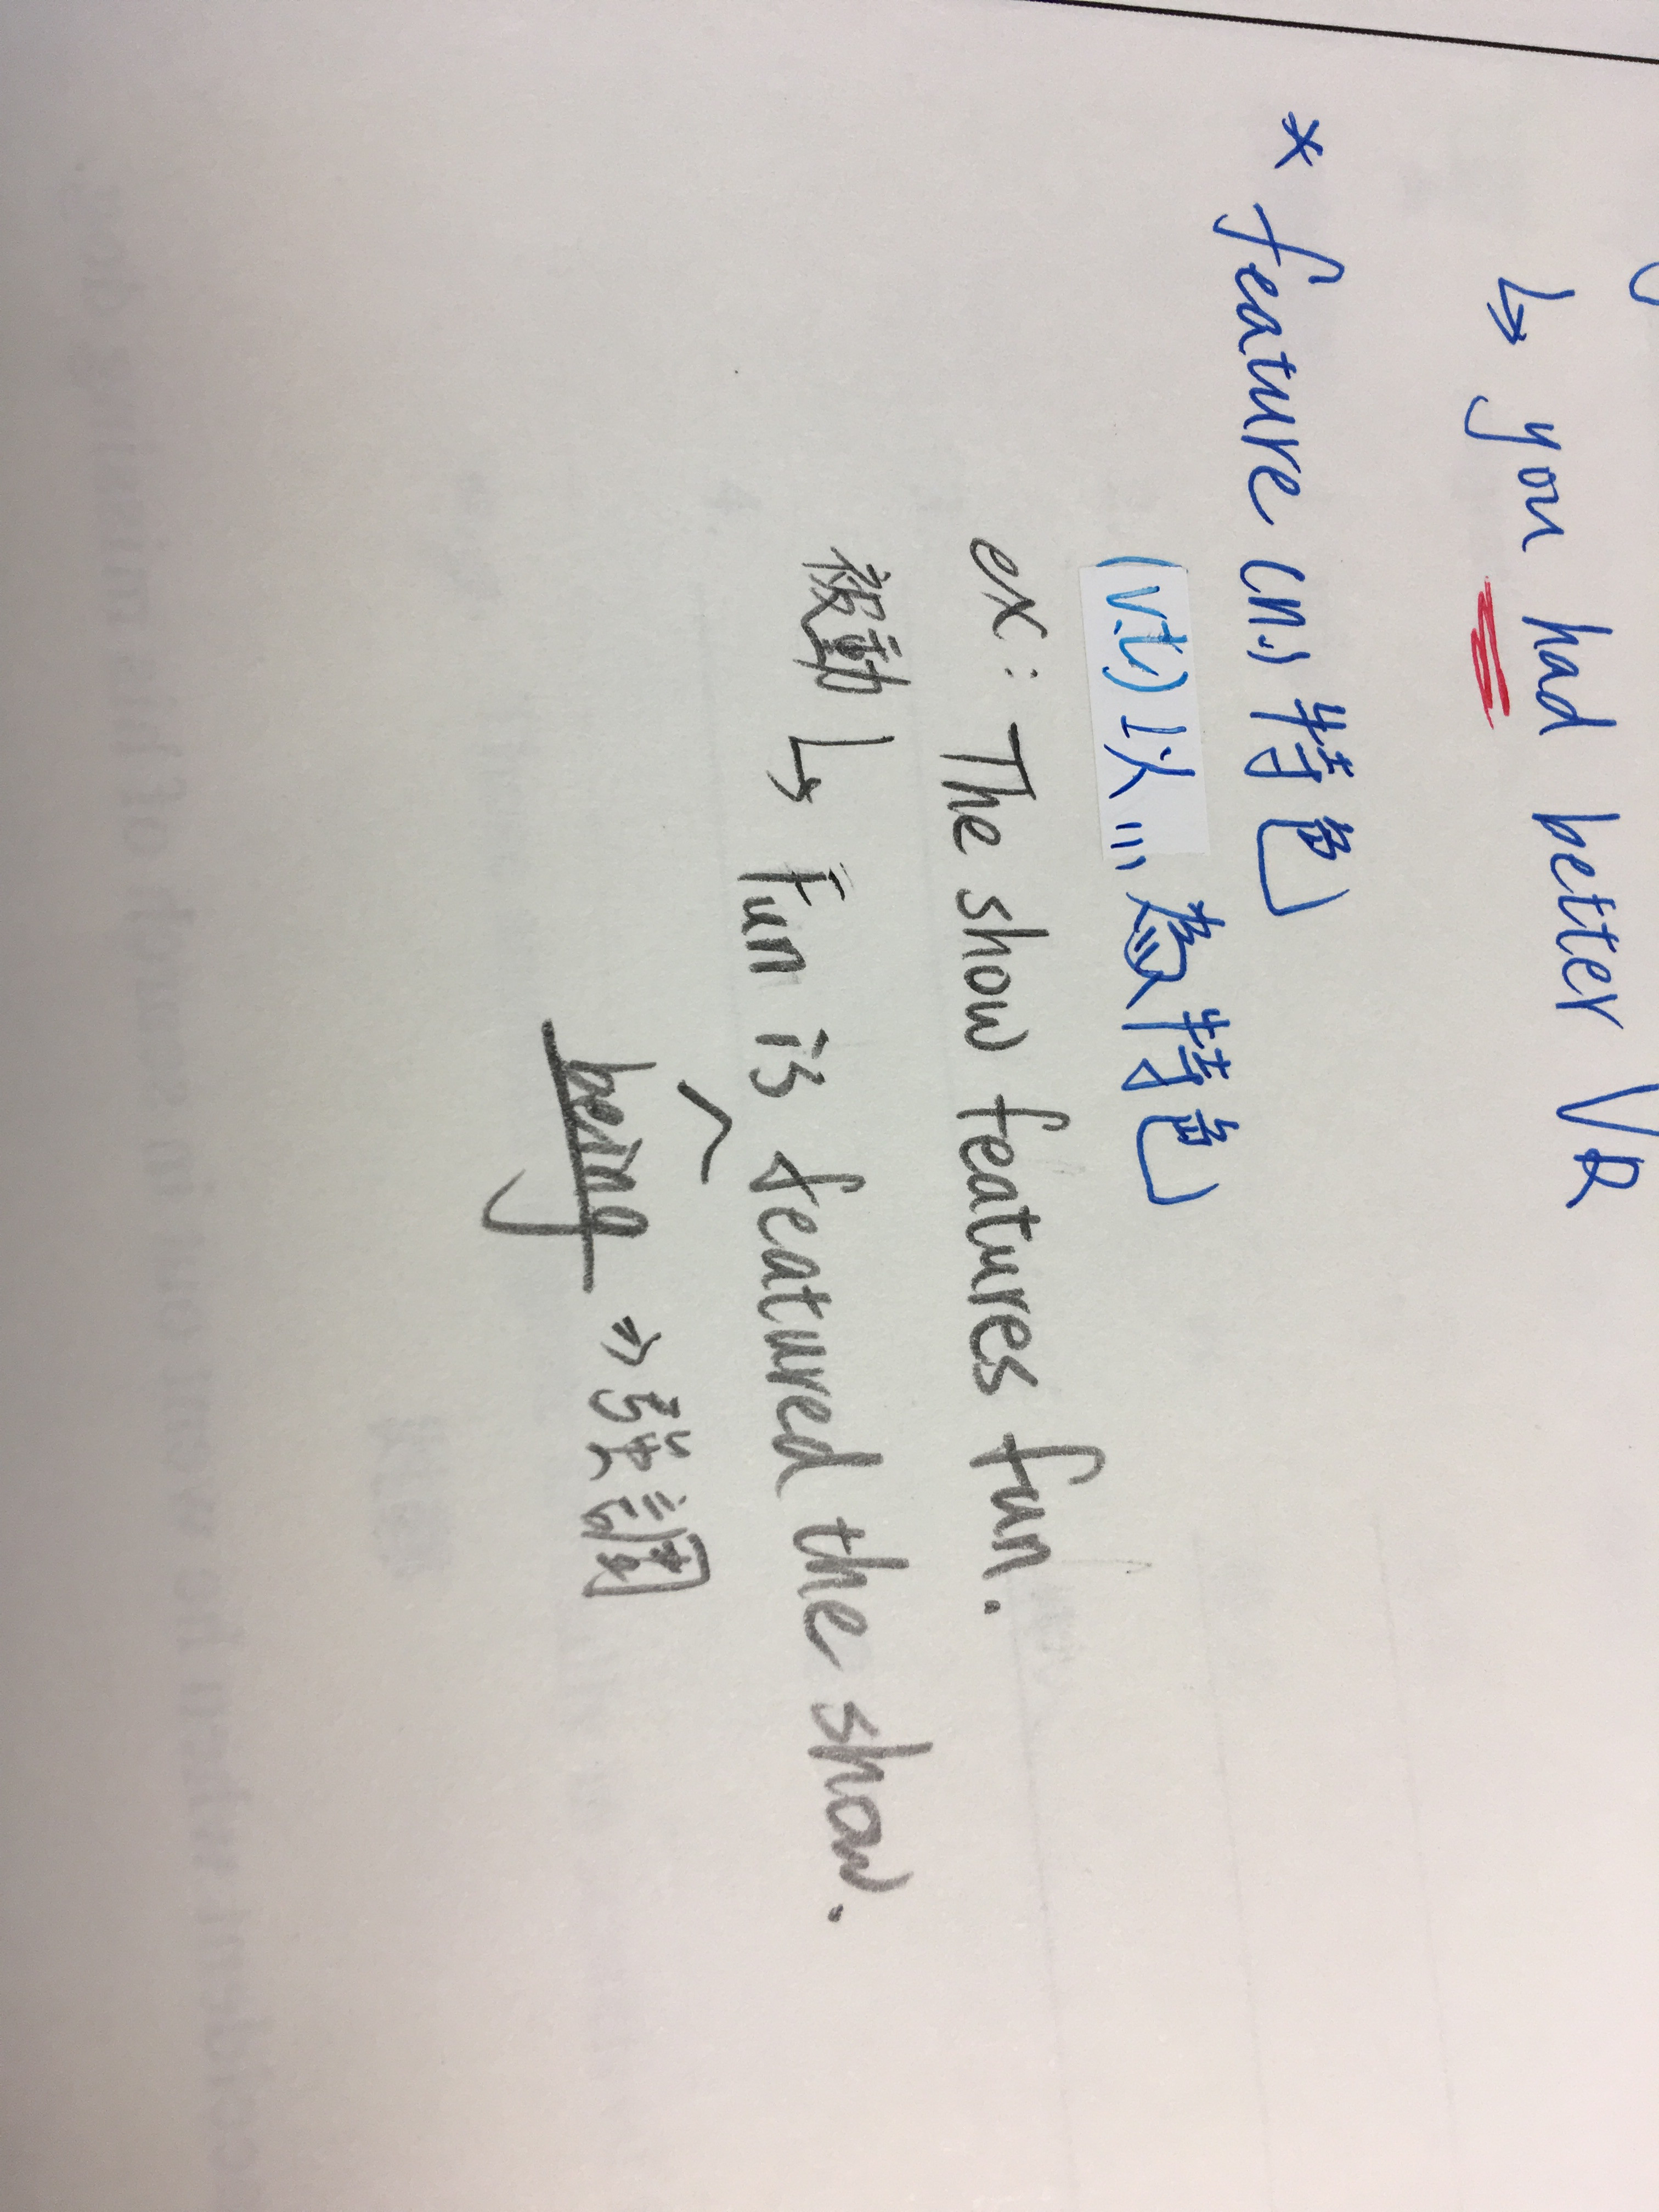 ↳ you had better VR
* feature (n.) 特色
(v.t.) 以…為特色
ex: The show features fun.
被動 ↳ Fun is ^ featured the show.
being => 強調